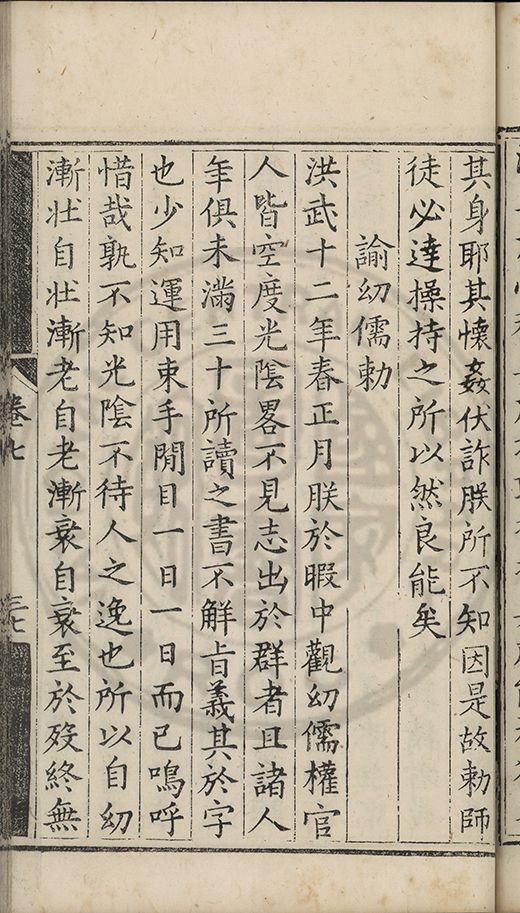 其身耶其懷姦伏詐朕所不知因是故勅師
徒必達操持之所以然良能矣
諭幼儒勅
洪武十二年春正月朕於暇中觀幼儒權官
人皆空度光陰畧不見志出於群者且諸人
年俱未滿三十所讀之書不解旨義其於字
也少知運用束手閒目一日一日而已嗚呼
惜哉孰不知光陰不待人之逸也所以自幼
漸壯自壯漸老自老漸衰自衰至於歿終無
卷七
三七